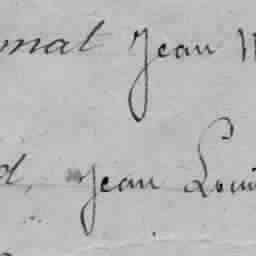 mat Jean
d, Jean Loui